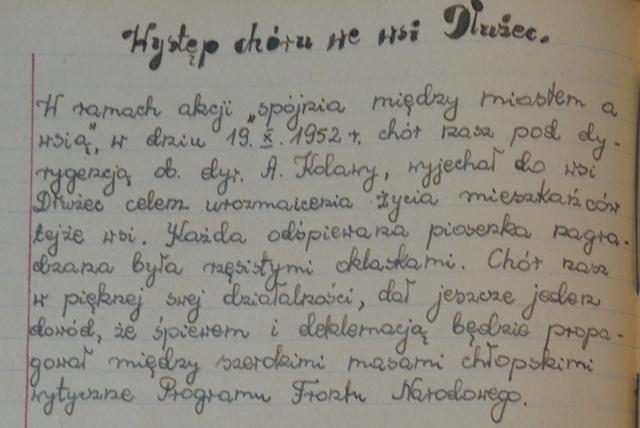 Występ chóru we wsi Dłużec.
W ramach akcji „spójnia między miastem a
wsią", w dniu 19.X.1952 r. chór nasz pod dy-
rygencją ob. dyr. A. Kolawy, wyjechał do wsi
Dłużec celem urozmaicenia życia mieszkańców
tejże wsi. Każda odśpiewana piosenka nagra-
dzana była rzęsistymi oklaskami. Chór nasz
w pięknej swej działalności, dał jeszcze jeden
dowód, że śpiewem i deklamacją będzie propa-
gował między szerokimi masami chłopskimi
wytyczne Programu Frontu Narodowego.